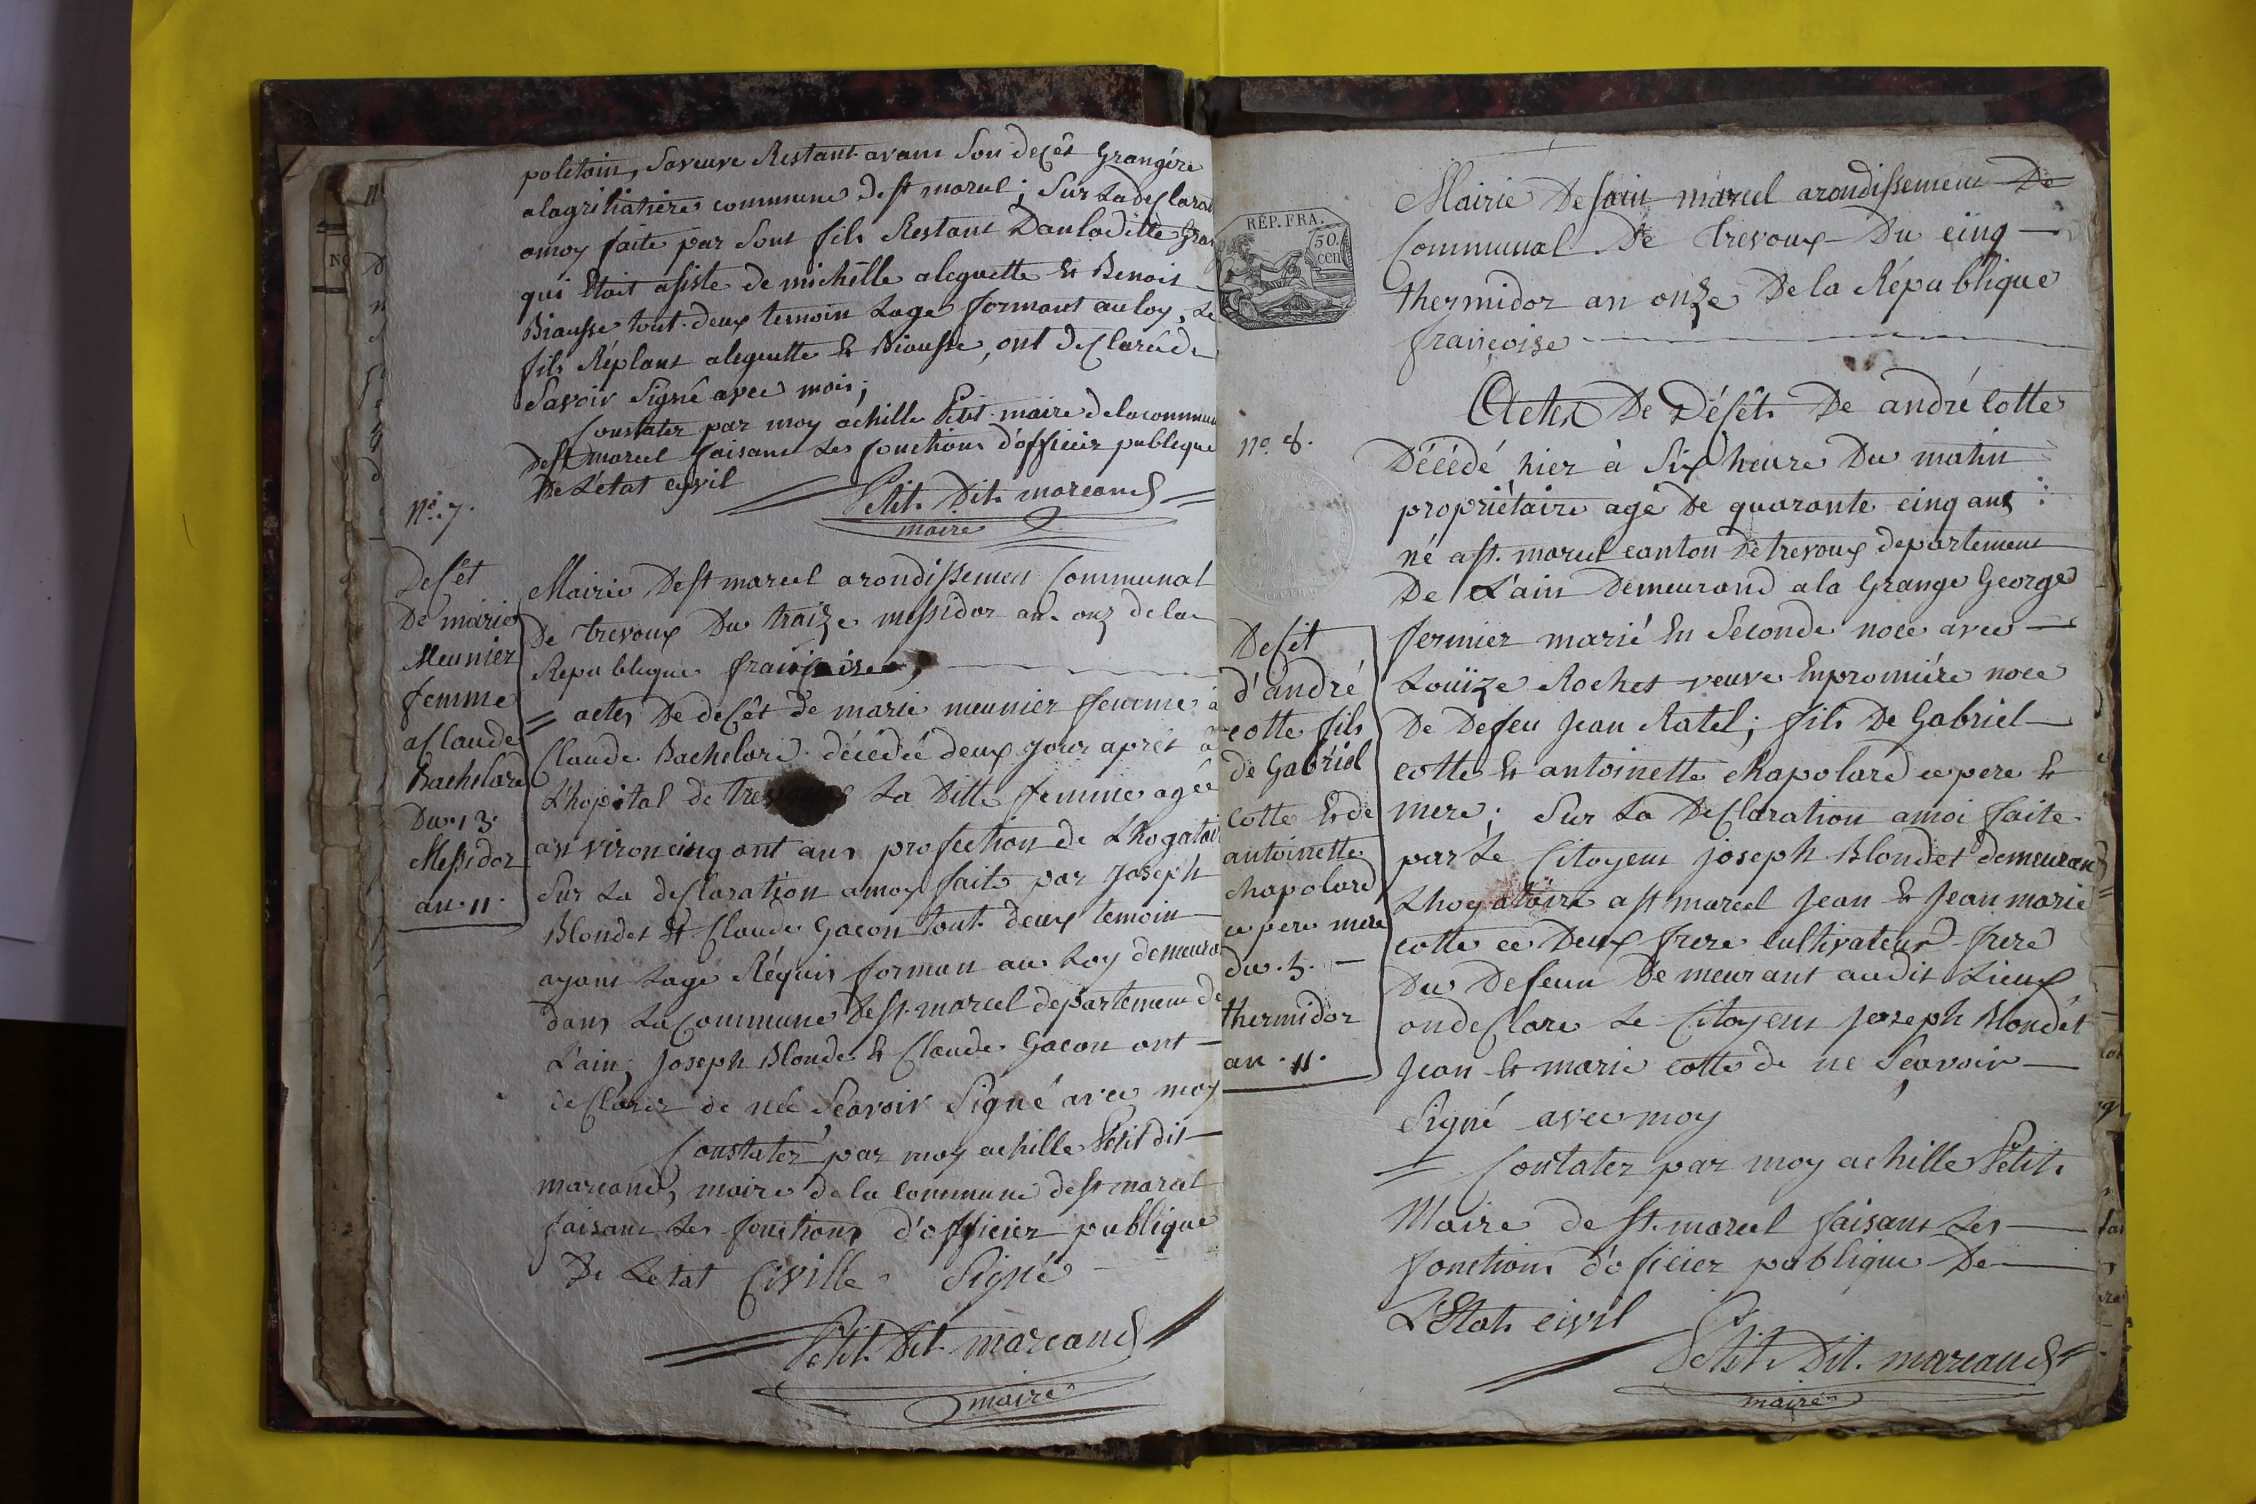 poletain, saveuve Restant avant Son decêt Grangére
alagrillatiére commune de st marcel; Sur La desClarat
amoy faite par Sont fils Restant Dan laditte Gran
qui Etoit asisté de michélle aleguette Et Benoit
Biausse tout deux temoin Lage formant au loy, Le
fils Réplant aleguette Et Biausse, ont desClaré de
Savoir Signé avec moi;
Constater par moy achille Petit maire de la commun
de St marcel faisant Les fonctions d'officier publique
De L'etat civil
Petit Dit marcand
maire
No. 7.
Desêt
De marie
Meunier
femme
a Claude
Bachelard
Du 13.
Messidor
an 11.
Mairie De st marcel arondissemen Communal
De trevoux Du traize messidor an onz de la
Republique francaise,
actes De desêt de marie meunier femme à
Claude Bachelard décédée deux jour aprés a
L'hopital de La Ditte femme agée
an viron cinq ant ans profection de Lhogatoir
Sur La desClaration a moy faite par Joseph
Blondet Et Claude Gacon tout deux temoin
ayant Lage Réquis formant au Loy demeura
dans La Commune de St. marcel departement de
L'ain; Joseph Blondet Et Claude Gacon ont
desClarez de ne Seavoir Signé avec moy
Constater par moy achille Petit dit
marcand, maire de la Commune de st marcel
faisant Les fonctions d'officier publique
De Letat Civille Signé
Petit Dit marcand
maire
REP. FRA.
50.
cen
Mairie De sain marcel arondissement De
Communal De trevoux Du cinq
thermidor an onze De la République
françoise
No. 8.
Actes De Désêt De andré cotte
Décédé hier à Six heure Du matin
propriétaire agé De quarante cinq ans
né a st. marcel canton De trevoux departement
De L'ain Demeurand a la Grange George
fermier marié En Seconde noce avec
Louïze Rochet veuve En promiére noce
De Defeu Jean Ratel; fils De Gabriel
cotte Et antoinette chapolard ce pere Et
mere; Sur La DesClaration a moi faite
par Le Citoyent joseph Blondet demeurant
Lhogatoire a st marcel Jean Et Jean marie
cotte ce Deux frere cultivateur frere
Du Defeun Demeurant audit Lieux
on desClare Le Citoyent Joseph Blondet
Jean Et marie cotte de ne Seavoir
Signé avec moy
Contater par moy achille Petit
Maire de St. marcel faisant Les
fonctions d'oficier publique De
L'Etat civil
Petit Dit. marcand
maire
Desêt
d'andré
cotte fils
de Gabriel
cotte Et de
antoinette
chapolard
ce pere mere
du. 5.
thermidor
an. 11.